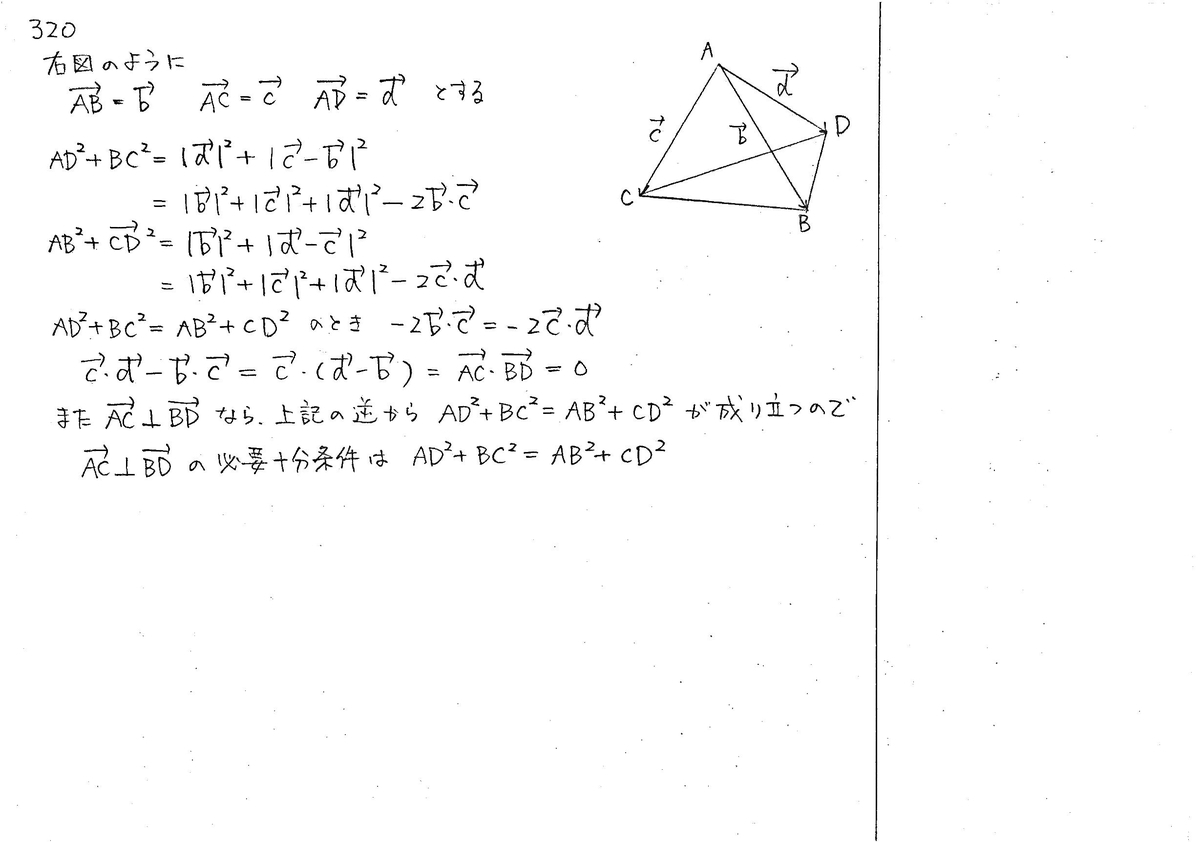 320
右図のように
$\overrightarrow{AB} = \vec{b}$ $\overrightarrow{AC} = \vec{c}$ $\overrightarrow{AD} = \vec{d}$ とする
$AD^2 + BC^2 = |\vec{d}|^2 + |\vec{c} - \vec{b}|^2$
$= |\vec{b}|^2 + |\vec{c}|^2 + |\vec{d}|^2 - 2\vec{b}\cdot\vec{c}$
$AB^2 + \overrightarrow{CD}^2 = |\vec{b}|^2 + |\vec{d} - \vec{c}|^2$
$= |\vec{b}|^2 + |\vec{c}|^2 + |\vec{d}|^2 - 2\vec{c}\cdot\vec{d}$
$AD^2 + BC^2 = AB^2 + CD^2$ のとき $-2\vec{b}\cdot\vec{c} = -2\vec{c}\cdot\vec{d}$
$\vec{c}\cdot\vec{d} - \vec{b}\cdot\vec{c} = \vec{c}\cdot(\vec{d} - \vec{b}) = \overrightarrow{AC}\cdot\overrightarrow{BD} = 0$
また $\overrightarrow{AC} \perp \overrightarrow{BD}$ なら、上記の逆から $AD^2 + BC^2 = AB^2 + CD^2$ が成り立つので
$\overrightarrow{AC} \perp \overrightarrow{BD}$ の必要十分条件は $AD^2 + BC^2 = AB^2 + CD^2$
A
$\vec{d}$
$\vec{c}$
$\vec{b}$
D
C
B